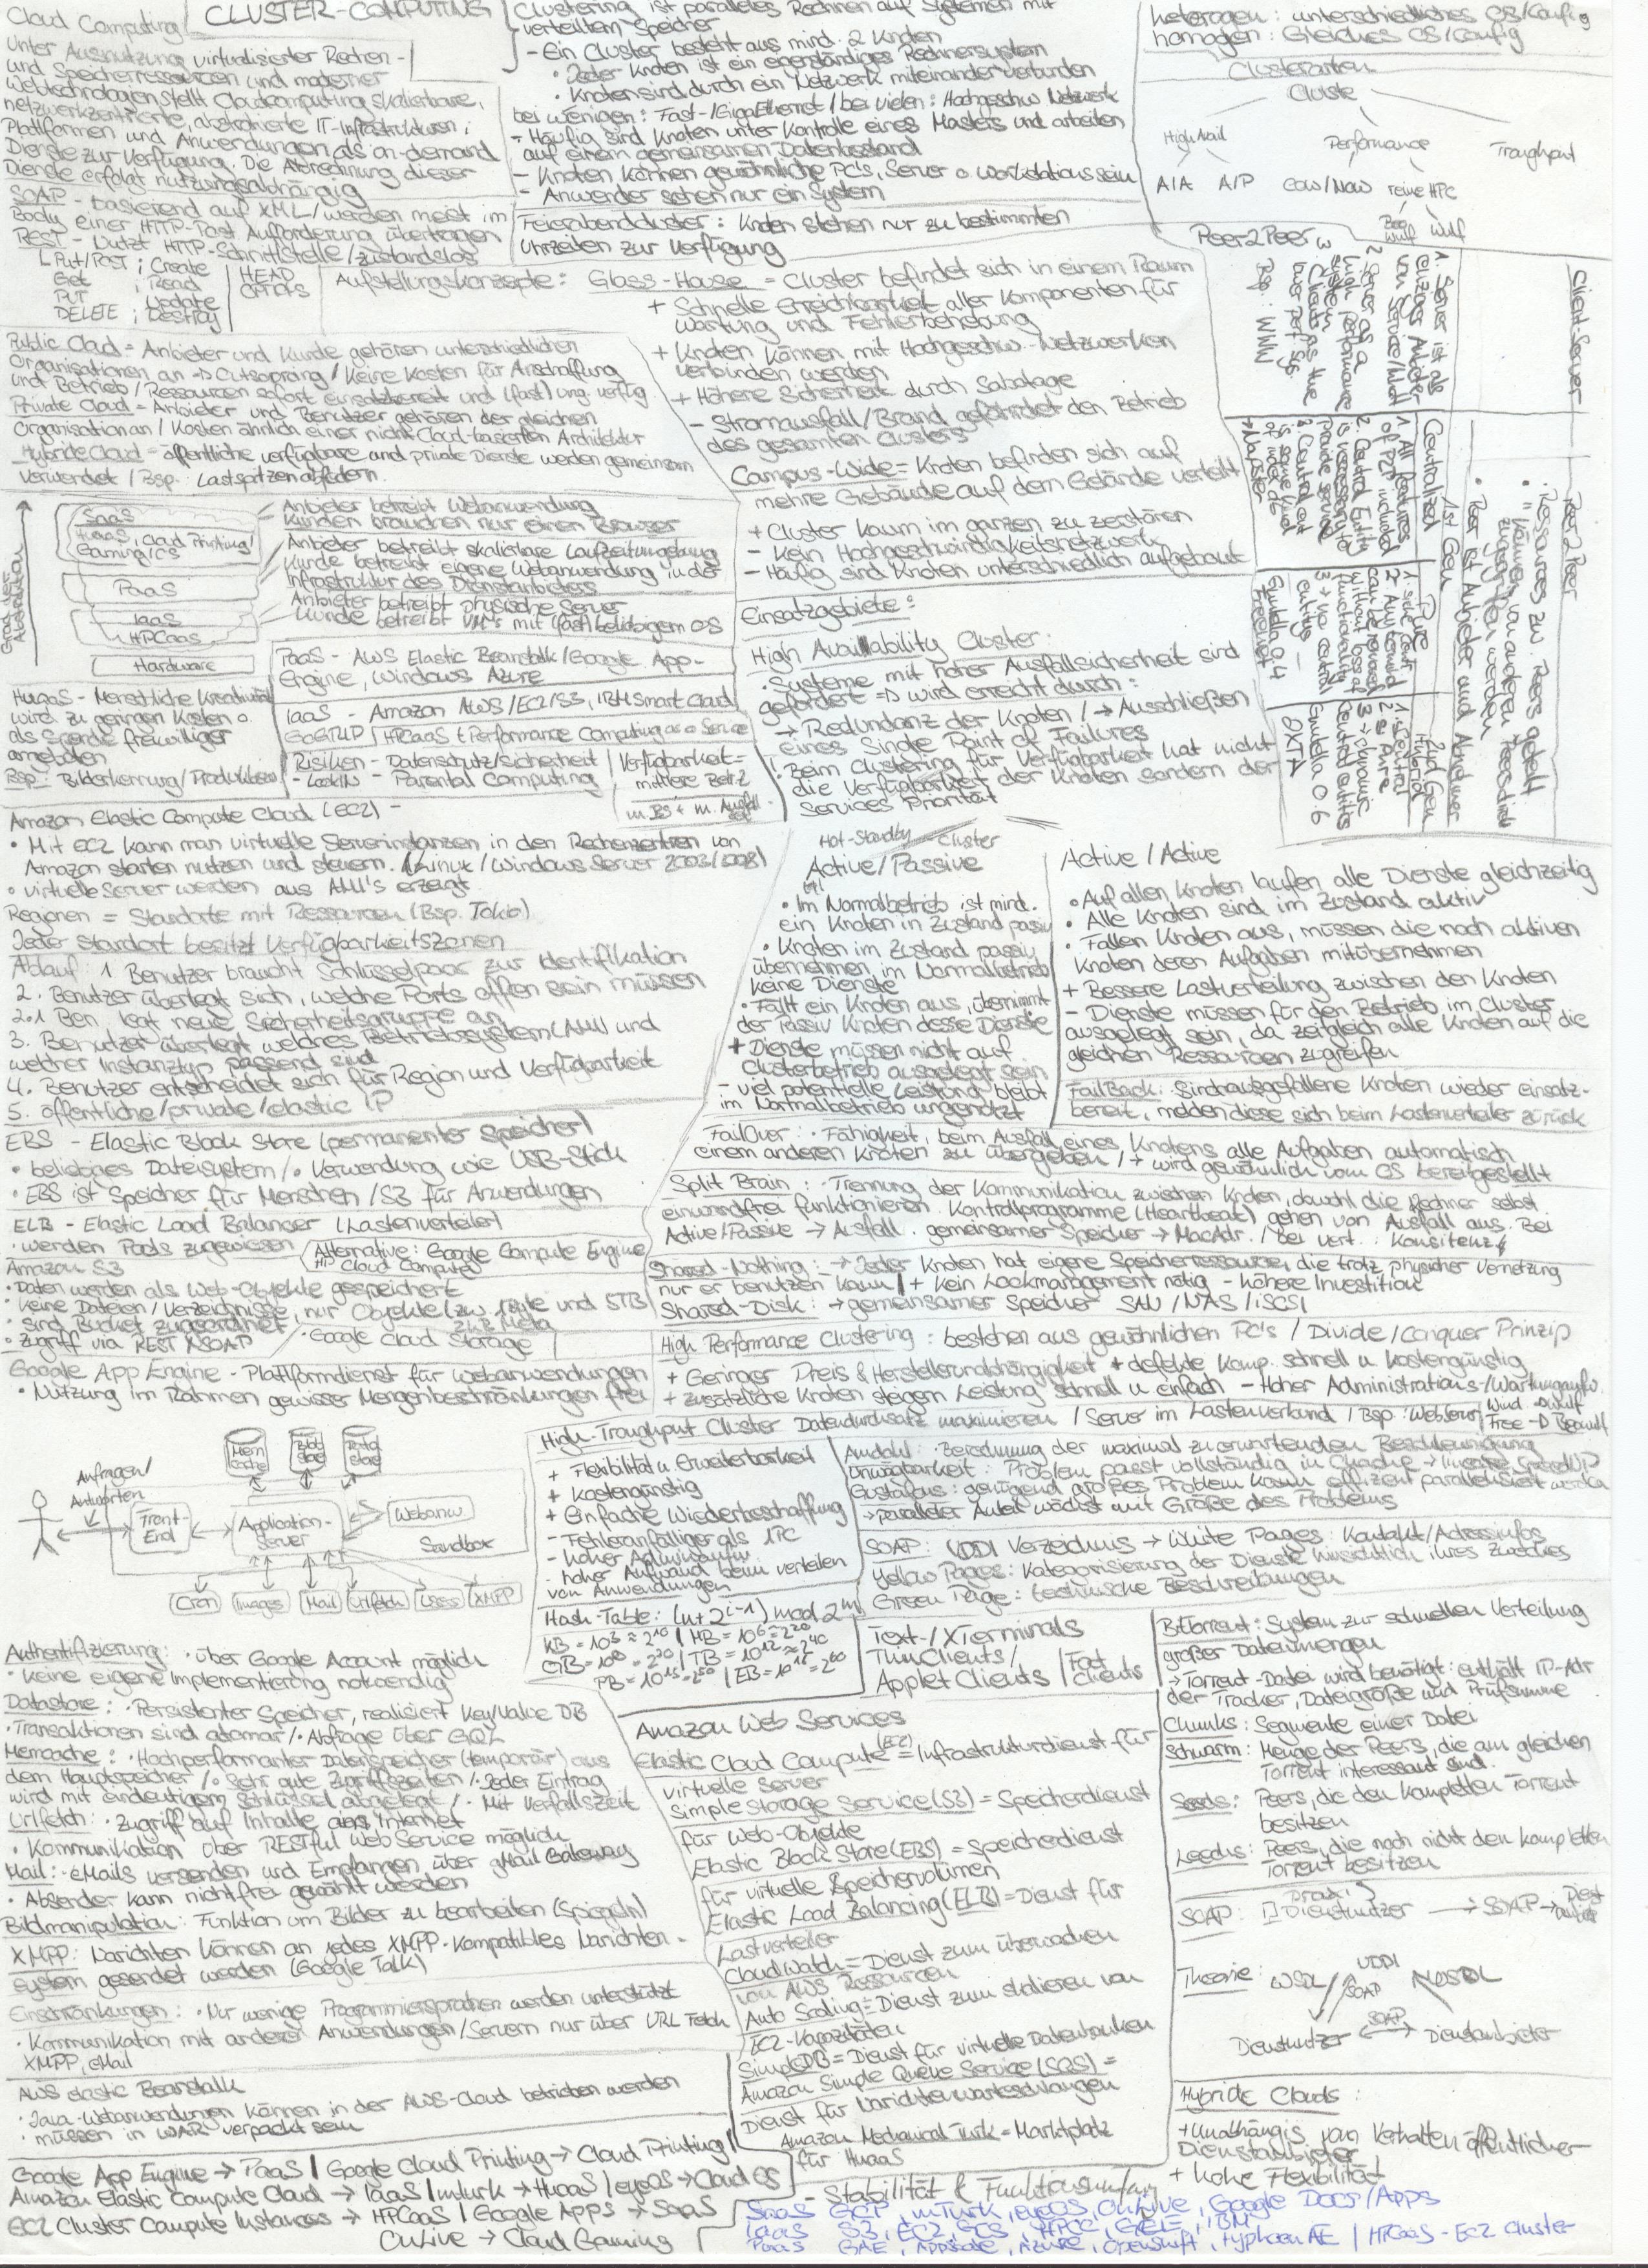 Cloud Computing
Unter Ausnutzung virtualisierter Rechen-
und Speicherressourcen und moderner
Webtechnologien stellt Cloudcomputing skalierbare,
netzwerkzentrierte, abstrahierte IT-Infrastrukturen,
Plattformen und Anwendungen als on-demand
Dienste zur Verfügung. Die Abrechnung dieser
Dienste erfolgt nutzungsabhängig
SOAP - basierend auf XML / werden meist im
Body einer HTTP-Post Aufforderung übertragen
REST - Nutzt HTTP-Schnittstelle / zustandslos
Put/Post ; Create
Get ; Read
Put ; Update
DELETE ; Destroy
HEAD
OPTIONS
CLUSTER-COMPUTING
Clustering ist paralleles Rechnen auf Systemen mit
verteiltem Speicher
- Ein Cluster besteht aus mind. 2 Knoten
• Jeder Knoten ist ein eigenständiges Rechnersystem
• Knoten sind durch ein Netzwerk miteinander verbunden
bei wenigen: Fast-/GigaEthernet / bei vielen: Hochgeschw Netzwerk
- Häufig sind Knoten unter Kontrolle eines Masters und arbeiten
auf einem gemeinsamen Datenbestand
- Knoten können gewöhnliche PC's, Server o. Workstations sein
- Anwender sehen nur ein System
Feierabendcluster: Knoten stehen nur zu bestimmten
Uhrzeiten zur Verfügung
heterogen: unterschiedliches OS/Config
homogen: Gleiches OS/Config
Clusterarten
Cluste
High Avail Performance Troughput
A/A A/P COW/NOW reine HPC
Beo wulf Wulf
Aufstellungskonzepte: Glass-House = Cluster befindet sich in einem Raum
+ Schnelle Erreichbarkeit aller Komponenten für
Wartung und Fehlerbehebung
+ Knoten können mit Hochgeschw.-Netzwerken
verbunden werden
+ Höhere Sicherheit durch Sabotage
- Stromausfall/Brand gefährdet den Betrieb
des gesamten Clusters
Campus-Wide = Knoten befinden sich auf
mehre Gebäude auf dem Gelände verteilt
+ Cluster kaum im ganzen zu zerstören
- Kein Hochgeschwindigkeitsnetzwerk
- Häufig sind Knoten unterschiedlich aufgebaut
Public Cloud = Anbieter und Kunde gehören unterschiedlichen
Organisationen an → Outsoprcng / Keine Kosten für Anschaffung
und Betrieb / Ressourcen sofort einsatzbereit und (fast) ung. verfüg.
Private Cloud = Anbieter und Benutzer gehören der gleichen
Organisation an / Kosten ähnlich einer nicht-Cloud-basierten Architektur
Hybride Cloud = öffentliche verfügbare und private Dienste werden gemeinsam
verwendet / Bsp. Lastspitzen abfedern
Grad der Abstraktion
SaaS
HuaaS, Cloud Printing/
Gaming/OS
PaaS
IaaS
HPCaaS
Hardware
Anbieter betreibt Webanwendung
Kunden brauchen nur einen Browser
Anbieter betreibt skalierbare Laufzeitumgebung
Kunde betreibt eigene Webanwendung in der
Infrastruktur des Dienstanbieters
Anbieter betreibt physische Server
Kunde betreibt VM's mit (fast) beliebigem OS
PaaS - AWS Elastic Beanstalk / Google App-
Engine, Windows Azure
IaaS - Amazon AWS/EC2/S3, IBM Smart Cloud
GoGRID / HPCaaS = Performance Computing as a Service
HuaaS - Menschliche Kreativität
wird zu geringen Kosten o.
als Spende freiwilliger
angeboten
Bsp: Bilderkennung/
Risiken - Datenschutz/Sicherheit
- LockIN - Parental Computing
Verfügbarkeit =
Peer2Peer
Client-Server
1. Server ist als
einziger Anbieter
von Service/Inhalt
2. Server as a
high performance
system
Clients as the
lower perf sys.
Bsp. WWW
Centralized
1st Gen
1. All features
of P2P included
2. Central Entity
is necessary to
provide service
→ Napster
Pure
3. → no central
entitys
Gnutella 0.4
Freenet
2nd Gen
Hybrid
3 → dynamic
central entitis
Gnutella 0.6
JXTA
Einsatzgebiete:
High Availability Cluster:
• Systeme mit hoher Ausfallsicherheit sind
gefordert → wird erreicht durch:
→ Redundanz der Knoten / → Ausschließen
eines Single Point of Failures
• Beim Clustering für Verfügbarkeit hat nicht
die Verfügbarkeit der Knoten sondern der
Services Priorität
Amazon Elastic Compute Cloud (EC2) -
• Mit EC2 kann man virtuelle Serverinstanzen in den Rechenzentren von
Amazon starten nutzen und steuern. (Linux/Windows Server 2003/2008)
• virtuelle Server werden aus AMI's erzeugt
Regionen = Standorte mit Ressourcen (Bsp. Tokio)
Jeder Standort besitzt Verfügbarkeitszonen
Ablauf: 1 Benutzer braucht Schlüsselpaar zur Identifikation
2. Benutzer überlegt sich, welche Ports offen sein müssen
2.1 Ben. legt neue Sicherheitsgruppe an
3. Benutzer überlegt welches Betriebssystem (AMI) und
welcher Instanztyp passend sind
4. Benutzer entscheidet sich für Region und Verfügbarkeit
5. öffentliche/private/elastic IP
EBS - Elastic Block Store (permanenter Speicher)
• beliebiges Dateisystem / • Verwendung wie USB-Stick
• EBS ist Speicher für Menschen / S3 für Anwendungen
ELB - Elastic Load Balancer (Lastenverteiler)
• werden Pools zugewiesen
Alternative: Google Compute Engine
HP Cloud Compute
Amazon S3
• Daten werden als Web-Objekte gespeichert
• Keine Dateien/Verzeichnisse, nur Objekte (zw 1Byte und 5TB)
• sind Bucket zugeordnet
• Zugriff via REST / SOAP
• Google Cloud Storage
Google App Engine - Plattformdienst für Webanwendungen
• Nutzung im Rahmen gewisser Mengenbeschränkungen frei
Hot-Standby-Cluster
Active/Passive
• Im Normalbetrieb ist mind.
ein Knoten in Zustand passiv
• Knoten im Zustand passiv
übernehmen im Normalbetrieb
keine Dienste
• Fällt ein Knoten aus, übernimmt
der Passiv Knoten desse Dienste
+ Dienste müssen nicht auf
Clusterbetrieb ausgelegt sein
- viel potentielle Leistung bleibt
im Normalbetrieb ungenutzt
Active / Active
• Auf allen Knoten laufen alle Dienste gleichzeitig
• Alle Knoten sind im Zustand aktiv
• Fallen Knoten aus, müssen die noch aktiven
Knoten deren Aufgaben mitübernehmen
+ Bessere Lastverteilung zwischen den Knoten
- Dienste müssen für den Betrieb im Cluster
ausgelegt sein, da zeitgleich alle Knoten auf die
gleichen Ressourcen zugreifen
FailBack: Sind ausgefallene Knoten wieder einsatz-
bereit, melden diese sich beim Lastenverteiler zurück
FailOver: • Fähigkeit, beim Ausfall eines Knotens alle Aufgaben automatisch
einem anderen Knoten zu übergeben / → wird gewöhnlich vom OS bereitgestellt
Split Brain: • Trennung der Kommunikation zwischen Knoten, obwohl die Rechner selbst
einwandfrei funktionieren. Kontrollprogramme (Heartbeat) gehen von Ausfall aus. Bei
Active/Passive → Ausfall. gemeinsamer Speicher → MacAdr. / Bei vert. : Konsitenz
Shared-Nothing: → Jeder Knoten hat eigene Speicherressource, die trotz physicher Vernetzung
nur er benutzen kann / + Kein Lockmanagement nötig - höhere Investition
Shared-Disk: → gemeinsamer Speicher SAN / NAS / iSCSI
High Performance Clustering: bestehen aus gewöhnlichen PC's / Divide/Conquer Prinzip
+ Geringer Preis & Herstellerunabhängigkeit + defekte Komp. schnell u. kostengünstig
+ zusätzliche Knoten steigern Leistung schnell u einfach - Hoher Administrations-/Wartungaufw.
High-Troughput Cluster Datendurchsatz maximieren / Server im Lastenverbund / Bsp: Webserver
Wind → Wulf
Free → Beowulf
+ Flexibilität u Erweiterbarkeit
+ Kostengünstig
+ Einfache Wiederbeschaffung
- Fehleranfälliger als 1PC
- hoher Adminaufw.
- hoher Aufwand beim verteilen
von Anwendungen
Amdahl: • Berechnung der maximal zu erwartenden Beschleunigung
Unwägbarkeit: Problem passt vollständig in Chache →
Gustafons: genügend großes Problem kann effizient parallelisiert werden
→ paralleler Anteil wächst mit Größe des Problems
SOAP: UDDI Verzeichnis → White Pages: Kontakt/Adressinfos
Yellow Pages: Kategorisierung der Dienste hinsichtlich ihres Zweckes
Green Page: technische Beschreibungen
Hash-Table: (n+2^(i-1)) mod 2^m
KB = 10^3 ≈ 2^10 / MB = 10^6 ≈ 2^20
GB = 10^9 ≈ 2^30 / TB = 10^12 ≈ 2^40
PB = 10^15 = 2^50 / EB = 10^18 = 2^60
Text-/XTerminals
ThinClients/
Applet Clients / Fat Clients
Anfragen/
Antworten
Front-
End
Application-
Server
Mem
cache
Blob
store
Data
store
Webanw.
Sandbox
Cron Images Mail Urlfetch Users XMPP
Authentifizierung: • über Google Account möglich
• keine eigene Implementierung notwendig
Datastore: • Persistenter Speicher, realisiert Key/Value DB
• Transaktionen sind atomar / • Abfrage über GQL
Memcache: • Hochperformanter Datenspeicher (temporär) aus
dem Hauptspeicher / • Sehr gute Zugriffszeiten / • Jeder Eintrag
wird mit eindeutigem Schlüssel abgelegt / • Mit Verfallszeit
Urlfetch: • Zugriff auf Inhalte aus Internet
• Kommunikation über RESTful Web Service möglich
Mail: • eMails versenden und Empfangen über gMail Gateway
• Absender kann nicht frei gewählt werden
Bildmanipulation: Funktion um Bilder zu bearbeiten (Spiegeln)
XMPP: Narichten können an jedes XMPP-Kompatibles Narichten-
system gesendet werden (Google Talk)
Einschränkungen: • Nur wenige Programmiersprachen werden unterstützt
• Kommunikation mit anderer Anwendungen/Servern nur über URL Fetch
XMPP, eMail
AWS elastic Beanstalk
• Java-Webanwendungen können in der AWS-Cloud betrieben werden
• müssen in WAR verpackt sein
Google App Engine → PaaS / Google Cloud Printing → Cloud Printing
Amazon Elastic Compute Cloud → IaaS / mturk → HuaaS / eyeOS → Cloud OS
EC2 Cluster Compute Instances → HPCaaS / Google Apps → SaaS
OnLive → Cloud Gaming
Amazon Web Services
Elastic Cloud Compute (EC2) = Infrastrukturdienst für
virtuelle Server
Simple Storage Service (S3) = Speicherdienst
für Web-Objekte
Elastic Block Store (EBS) = Speicherdienst
für virtuelle Speichervolumen
Elastic Load Balancing (ELB) = Dienst für
Lastverteiler
CloudWatch = Dienst zum überwachen
von AWS Ressourcen
Auto Scaling = Dienst zum skalieren von
EC2-Kapazitäten
SimpleDB = Dienst für virtuelle Datenbanken
Amazon Simple Queue Service (SQS) =
Dienst für Narichtenwarteschlangen
Amazon Mechanical Turk = Marktplatz
für HuaaS
BitTorrent: System zur schnellen Verteilung
großer Dateimengen
→ Torrent-Datei wird benötigt: enthält IP-Adr
der Tracker, Dateigröße und Prüfsumme
Chunks: Segmente einer Datei
Schwarm: Menge der Peers, die am gleichen
Torrent interessant sind
Seeds: Peers, die den kompletten Torrent
besitzen
Leechs: Peers, die noch nicht den kompletten
Torrent besitzen
SOAP: Dienstnutzer → SOAP →
Theorie: WSDL / UDDI
SOAP WSDL
Dienstnutzer SOAP Dienstanbieter
Hybride Clouds:
+ Unabhängig vom Verhalten öffentlicher
Dienstanbieter
+ hohe Flexibilität
- Stabilität & Funktionsumfang
SaaS GCP, mTurk, eyeOS, OnLive, Google Docs/Apps
IaaS S3, EC2, GCS, HPCC, GCE, IBM
PaaS GAE, AppScale, Azure, Openshift, TyphoonAE / HPCaaS - EC2 Cluster